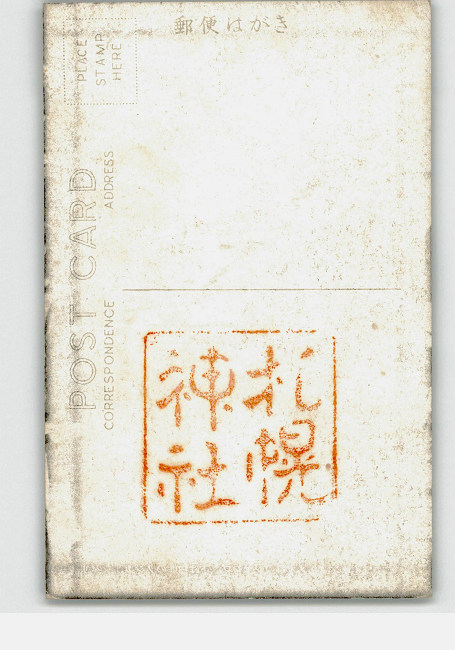 郵便はがき
PLACE
STAMP
HERE
POST CARD
CORRESPONDENCE
ADDRESS
札幌
神社